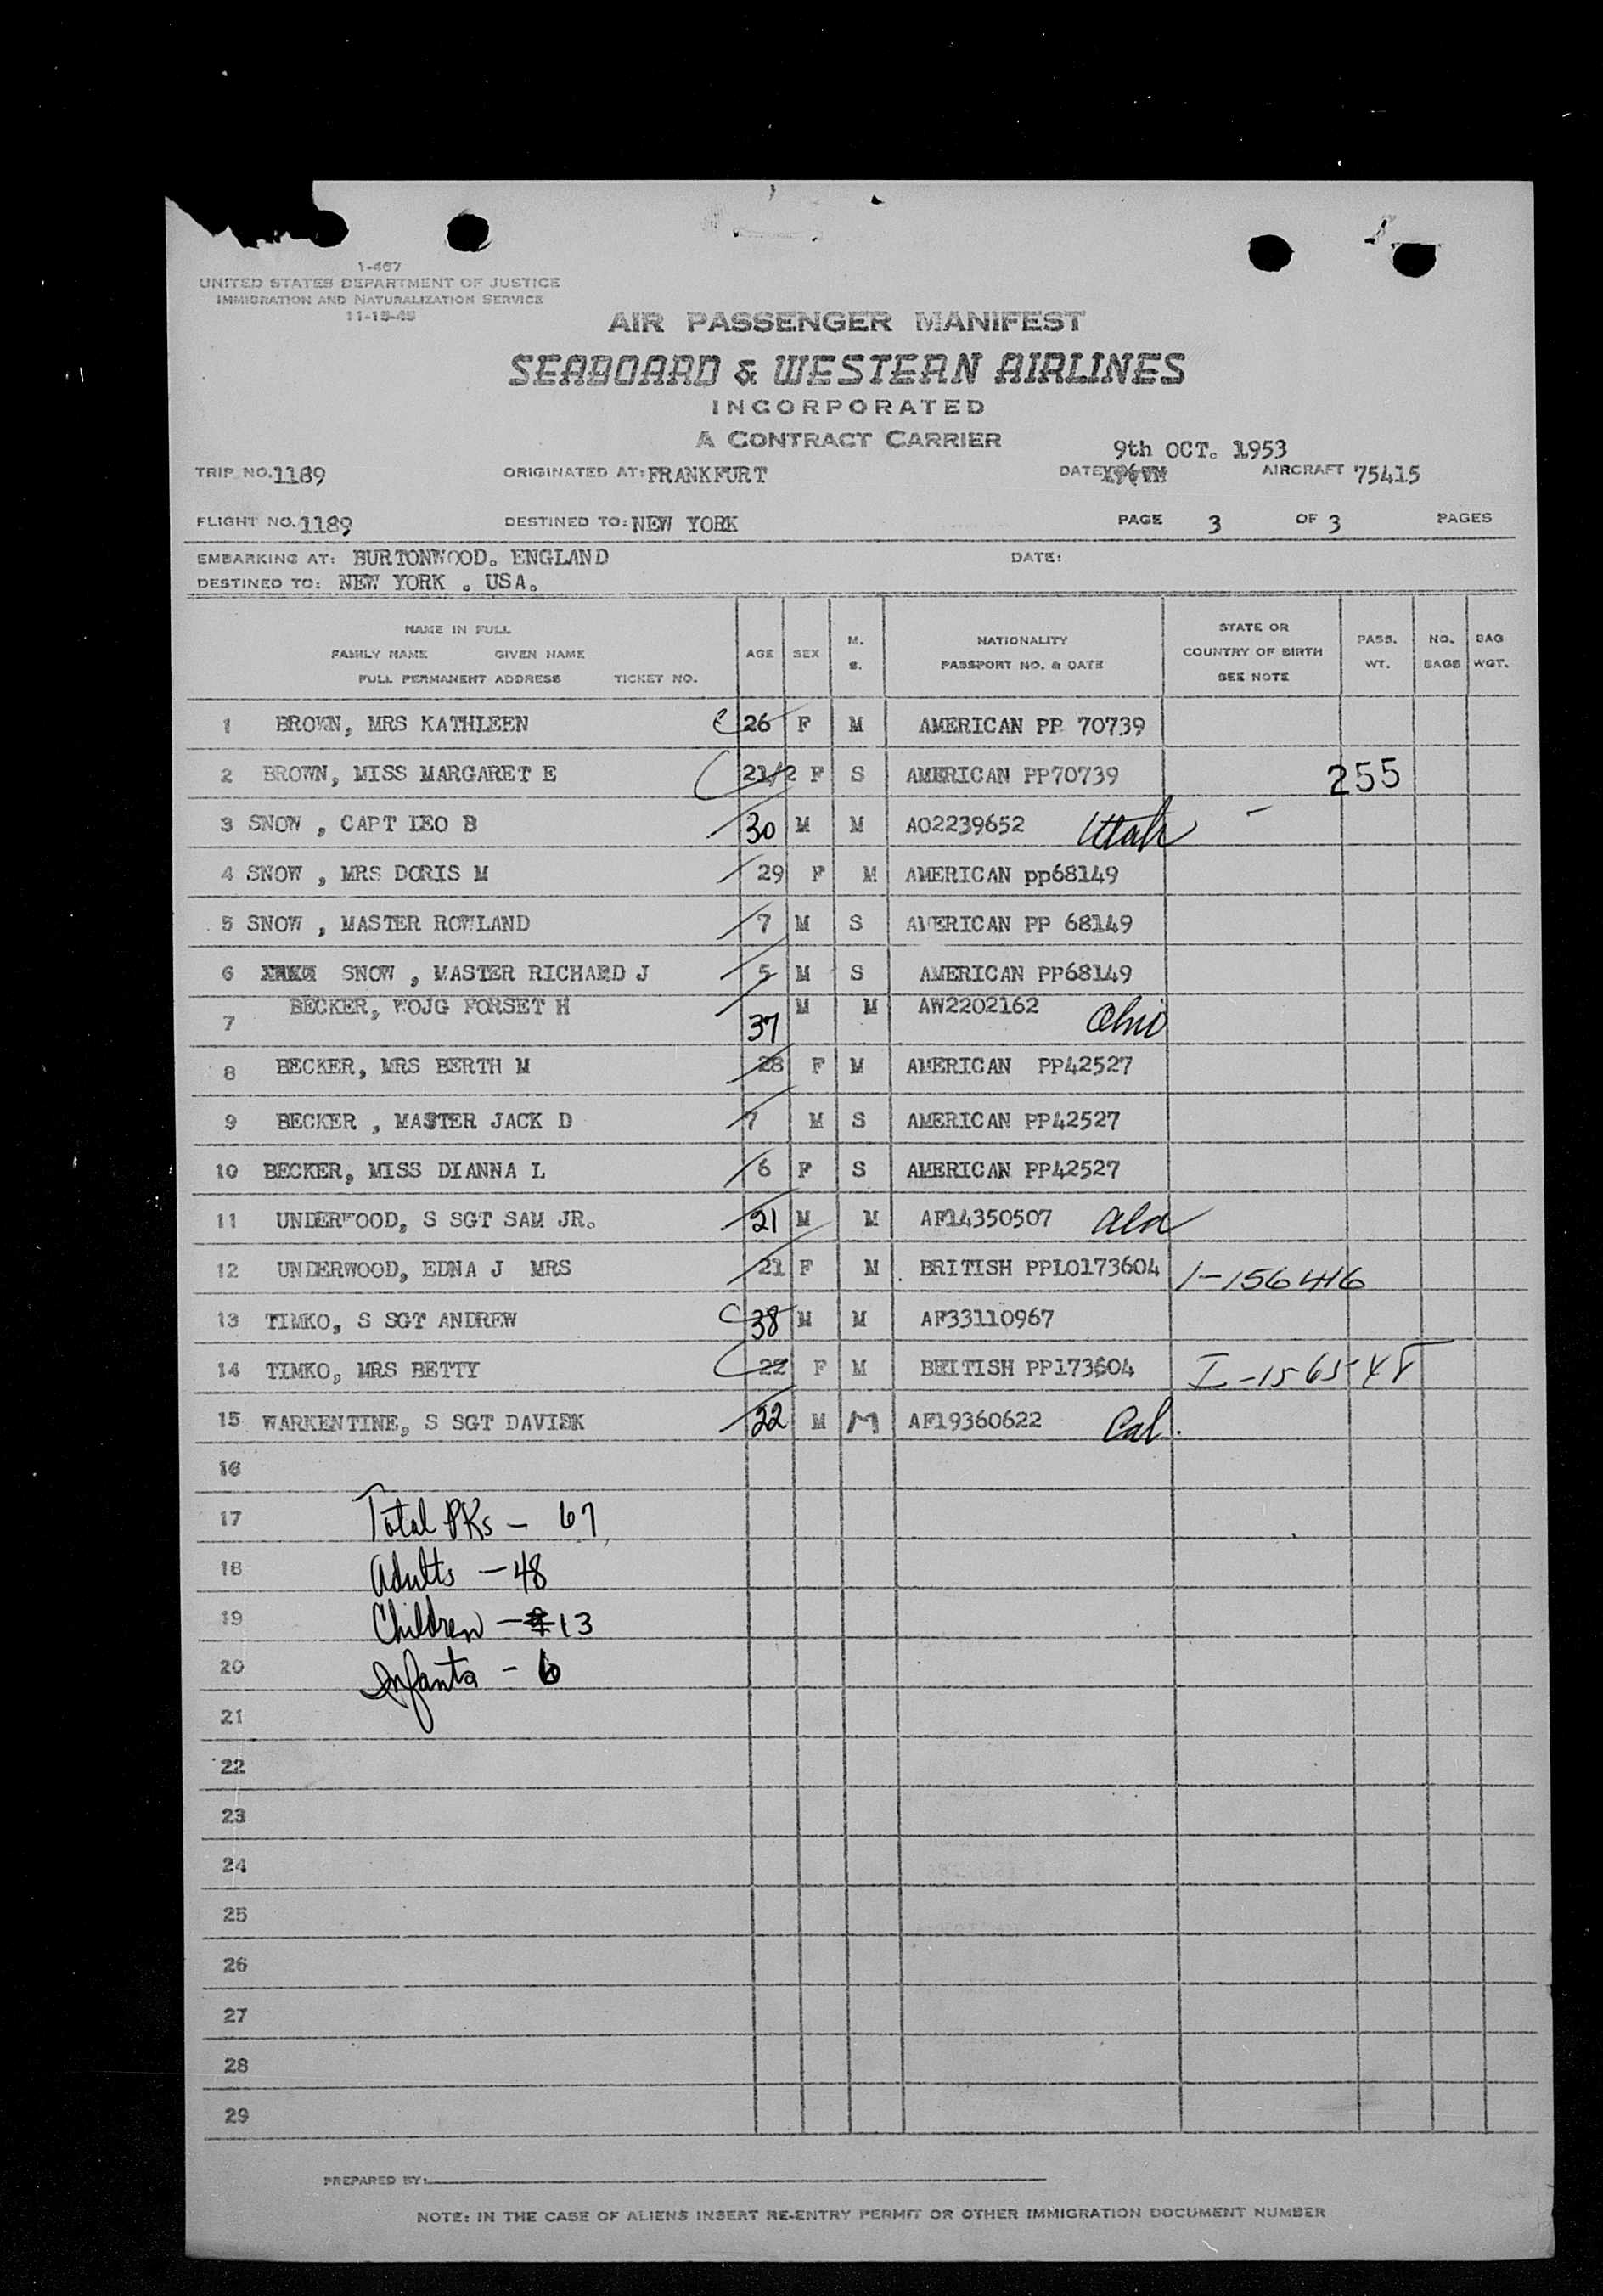 1-467
UNITED STATES DEPARTMENT OF JUSTICE
IMMIGRATION AND NATURALIZATION SERVICE
11-15-45
AIR PASSENGER MANIFEST
SEABOARD & WESTERN AIRLINES
INCORPORATED
A CONTRACT CARRIER
9th OCT. 1953
TRIP NO. 1189 ORIGINATED AT: FRANKFURT DATE AIRCRAFT 75415
FLIGHT NO. 1189 DESTINED TO: NEW YORK PAGE 3 OF 3 PAGES
EMBARKING AT: BURTONWOOD. ENGLAND DATE:
DESTINED TO: NEW YORK . USA.
NAME IN FULL
FAMILY NAME GIVEN NAME
FULL PERMANENT ADDRESS TICKET NO. AGE SEX M. S. NATIONALITY PASSPORT NO. & DATE STATE OR COUNTRY OF BIRTH SEE NOTE PASS. WT. NO. BAGS BAG WGT.
1 BROWN, MRS KATHLEEN 26 F M AMERICAN PP 70739
2 BROWN, MISS MARGARET E 21/2 F S AMERICAN PP70739 255
3 SNOW , CAPT LEO B 30 M M AO2239652 Utah -
4 SNOW , MRS DORIS M 29 F M AMERICAN pp68149
5 SNOW , MASTER ROWLAND 7 M S AMERICAN PP 68149
6 SNOW , MASTER RICHARD J 5 M S AMERICAN PP68149
7 BECKER, WOJG FORSET H 37 M M AW2202162 Ohio
8 BECKER, MRS BERTH M 28 F M AMERICAN PP42527
9 BECKER , MASTER JACK D 7 M S AMERICAN PP42527
10 BECKER, MISS DIANNA L 6 F S AMERICAN PP42527
11 UNDERWOOD, S SGT SAM JR. 21 M M AF14350507 Ala
12 UNDERWOOD, EDNA J MRS 21 F M BRITISH PPLO173604 I-156416
13 TIMKO, S SGT ANDREW 38 M M AF33110967
14 TIMKO, MRS BETTY 22 F M BRITISH PP173604 I-156548
15 WARKENTINE, S SGT DAVISK 22 M M AF19360622 Cal.
16
17 Total PKs - 67
18 Adults - 48
19 Children - 13
20 Infants - 6
21
22
23
24
25
26
27
28
29
PREPARED BY:
NOTE: IN THE CASE OF ALIENS INSERT RE-ENTRY PERMIT OR OTHER IMMIGRATION DOCUMENT NUMBER